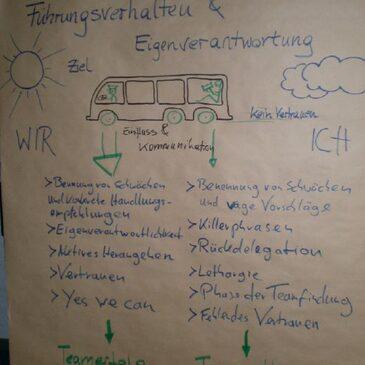 Führungsverhalten &
Eigenverantwortung
Ziel
kein Vertrauen
WIR
Einfluss &
Kommunikation
ICH
> Benennung von Schwächen
und konkrete Handlungs-
empfehlungen
> Eigenverantwortlichkeit
> Aktives Herangehen
> Vertrauen
> Yes we can
> Benennung von Schwächen
und vage Vorschläge
> Killerphrasen
> Rückdelegation
> Lethargie
> Phase der Teamfindung
> Fehlendes Vertrauen